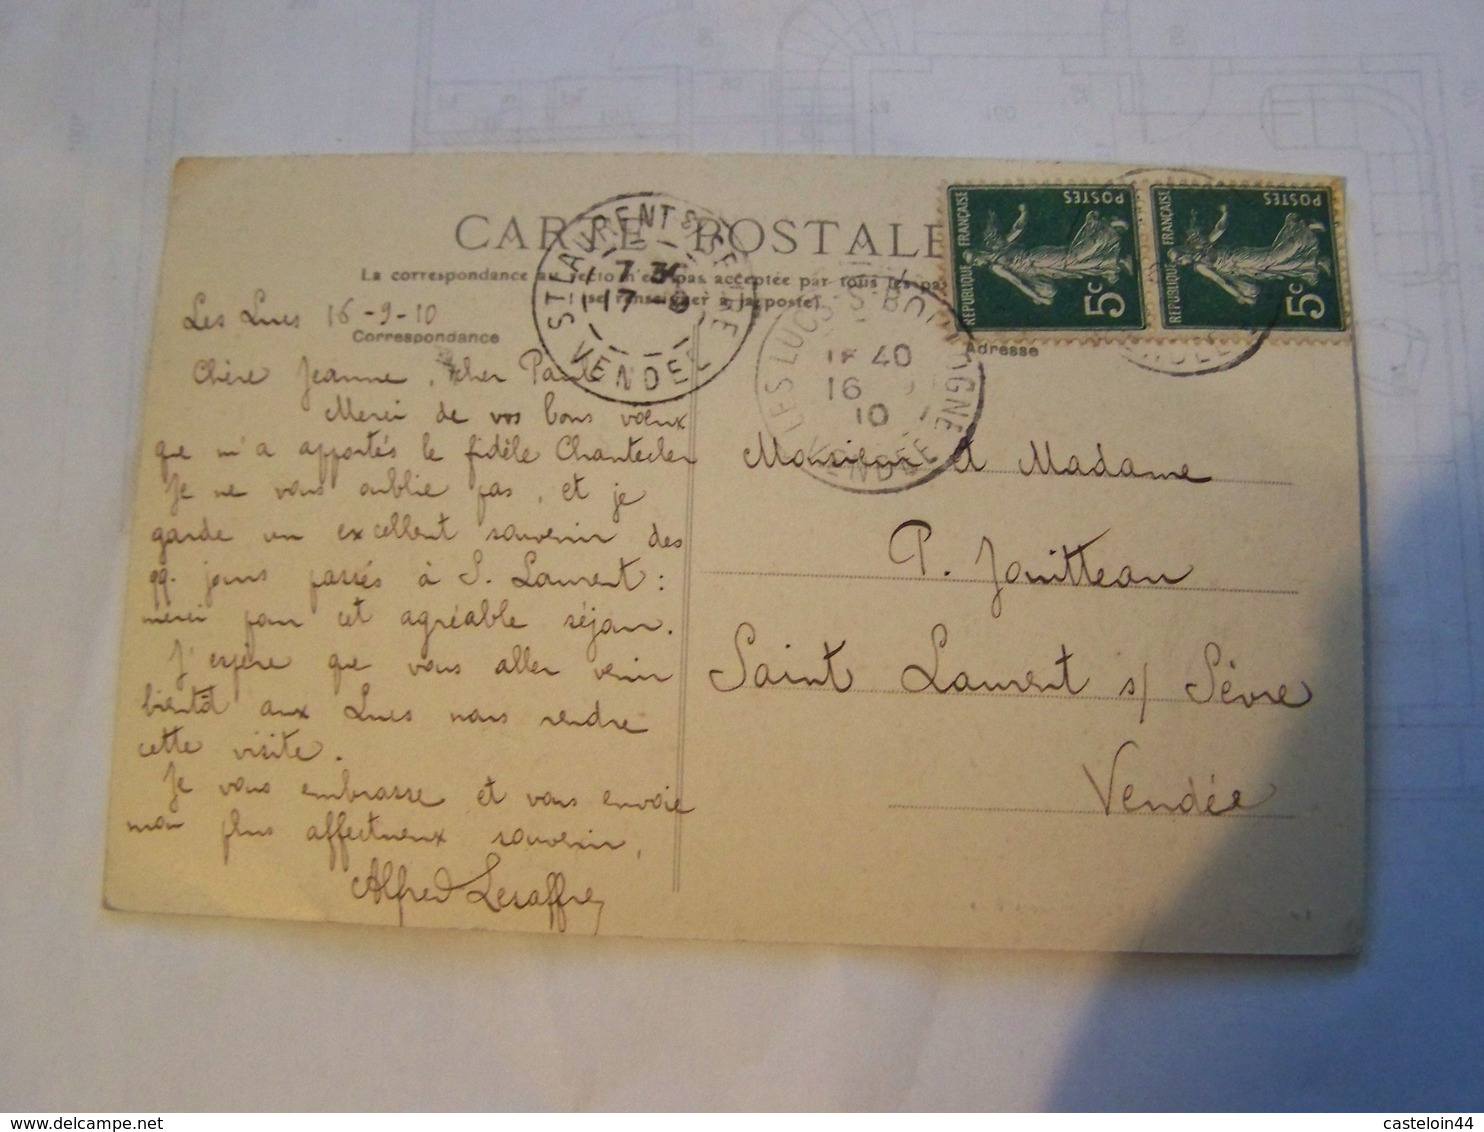 CARTE POSTALE
La correspondance au recto n'est pas acceptée par tous les pays
(se renseigner à la poste)
Correspondance
Adresse
ST LAURENT S/ SÈVRE
7 30
17 9
VENDÉE
LES LUCS-S-BOULOGNE
40
16
10
VENDÉE
RÉPUBLIQUE FRANÇAISE
POSTES
5c
RÉPUBLIQUE FRANÇAISE
POSTES
5c
Les Lucs 16-9-10
Chère Jeanne, cher Paul
Merci de vos bons vœux
que m'a apportés le fidèle Chantecler
Je ne vous oublie pas, et je
garde un excellent souvenir des
qq. jours passés à S. Laurent :
merci pour cet agréable séjour.
J'espère que vous aller venir
bientôt aux Lucs nous rendre
cette visite.
Je vous embrasse et vous envoie
mon plus affectueux souvenir,
Alfred Lesaffre
Monsieur et Madame
P. Jouitteau
Saint Laurent s/ Sèvre
Vendée
casteloin44